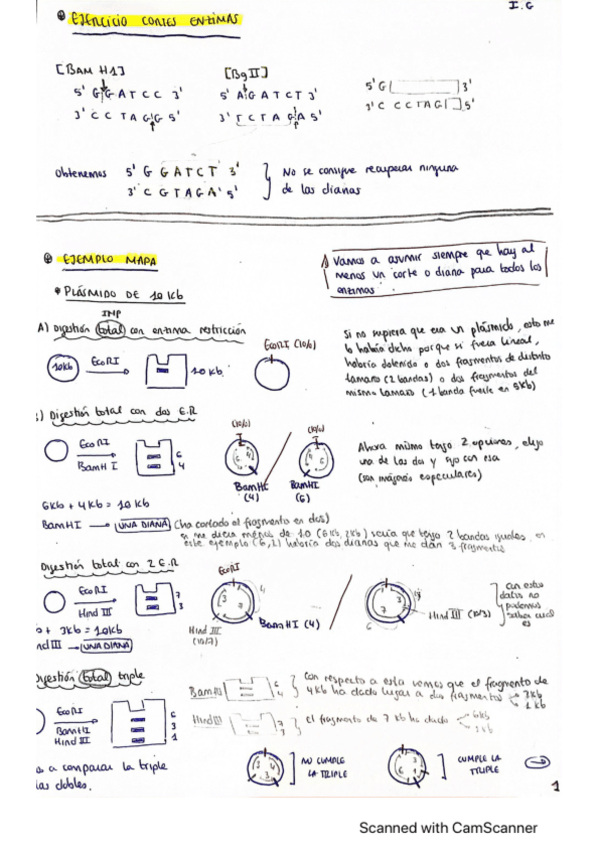 I.G
EJERCICIO CORTES ENZIMAS
[BAM H1]
5' G G A T C C 3'
3' C C T A G G 5'
[BglII]
5' A G A T C T 3'
3' T C T A G A 5'
5' G 3'
3' C C C T A G 5'
Obtenemos 5' G G A T C T 3'
3' C G T A G A 5'
No se consigue recuperar ninguna
de las dianas
EJEMPLO MAPA
Vamos a asumir siempre que hay al
menos un corte o diana para todos los
enzimas
PLÁSMIDO DE 10 Kb
IMP
A) Digestión total con enzima restricción
10kb EcoRI 10 kb
EcoRI (10/0)
Si no supiera que era un plásmido, esto me
lo habría dicho porque si fuera lineal,
habría obtenido o dos fragmentos de distinto
tamaño (2 bandas) o dos fragmentos del
mismo tamaño (1 banda fuerte en 5kb)
) Digestión total con dos E.R
EcoRI
BamH I
6
4
(10/0)
BamHI
(4)
(10/0)
BamHI
(6)
Ahora mismo tengo 2 opciones, elijo
una de las dos y sigo con esa
(son imágenes especulares)
6kb + 4kb = 10 kb
BamHI → UNA DIANA (ha cortado el fragmento en dos)
si me diera menos de 10 (6kb, 2kb) sería que tengo 2 bandas iguales, en
este ejemplo (6,2) habría dos dianas que me dan 3 fragmentos
Digestión total con 2 E.R
EcoRI
Hind III
7
3
EcoRI
4
3
7
6
Hind III
(10/7)
BamHI (4)
3
7
6
Hind III (10/3)
con estos
datos no
podemos
saber cual
es
+ 3kb = 10kb
nd III → UNA DIANA
igestión total triple
EcoRI
BamHI
Hind III
6
3
1
6
4
Con respecto a esta vemos que el fragmento de
4kb ha dado lugar a dos fragmentos 3kb
1kb
Hind III
7
3
el fragmento de 7 kb ha dado 6kb
1kb
a comparar la triple
las dobles.
NO CUMPLE
LA TRIPLE
CUMPLE LA
TRIPLE
1
Scanned with CamScanner